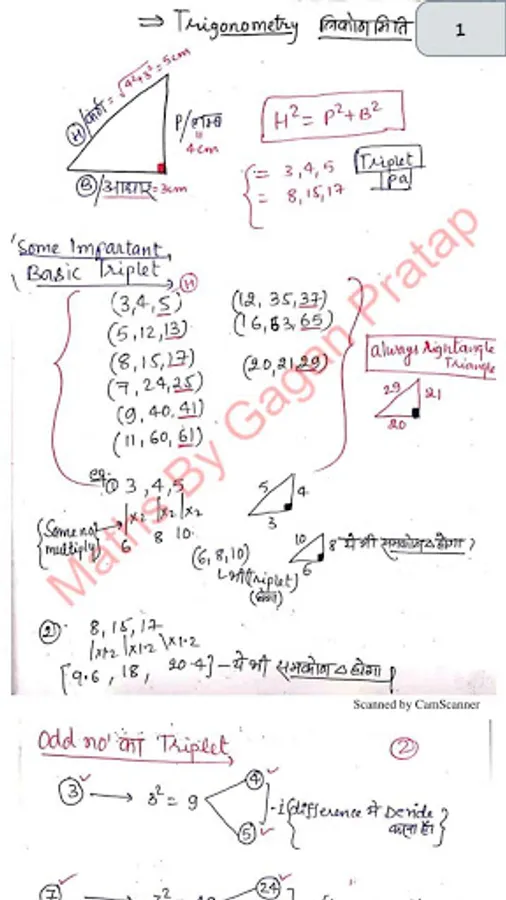 ⇒ Trigonometry त्रिकोणमिति
1
(H)/कर्ण = √4²+3² = 5cm
P/लम्ब = 4cm
(B)/आधार = 3cm
H² = P²+B²
= 3,4,5
= 8,15,17
Triplet
Some Important
Basic Triplet
(H)
(3,4,5)
(5,12,13)
(8,15,17)
(7,24,25)
(9,40,41)
(11,60,61)
(12, 35,37)
(16,63,65)
(20,21,29)
always Rightangle
Triangle
29
21
20
eg. ① 3,4,5
|×2 |×2 |×2
6 8 10
{Some no. multiply}
5
4
3
(6,8,10)
भी Triplet
होगा
10
8
6
ये भी समकोण Δ होगा
② 8,15,17
|×1.2 |×1.2 |×1.2
[9.6, 18, 20.4] - ये भी समकोण Δ होगा
Maths By Gagan Pratap
Scanned by CamScanner
Odd no का Triplet
②
③ → 3² = 9
④
⑤
difference में Devide
करना है
⑦
24